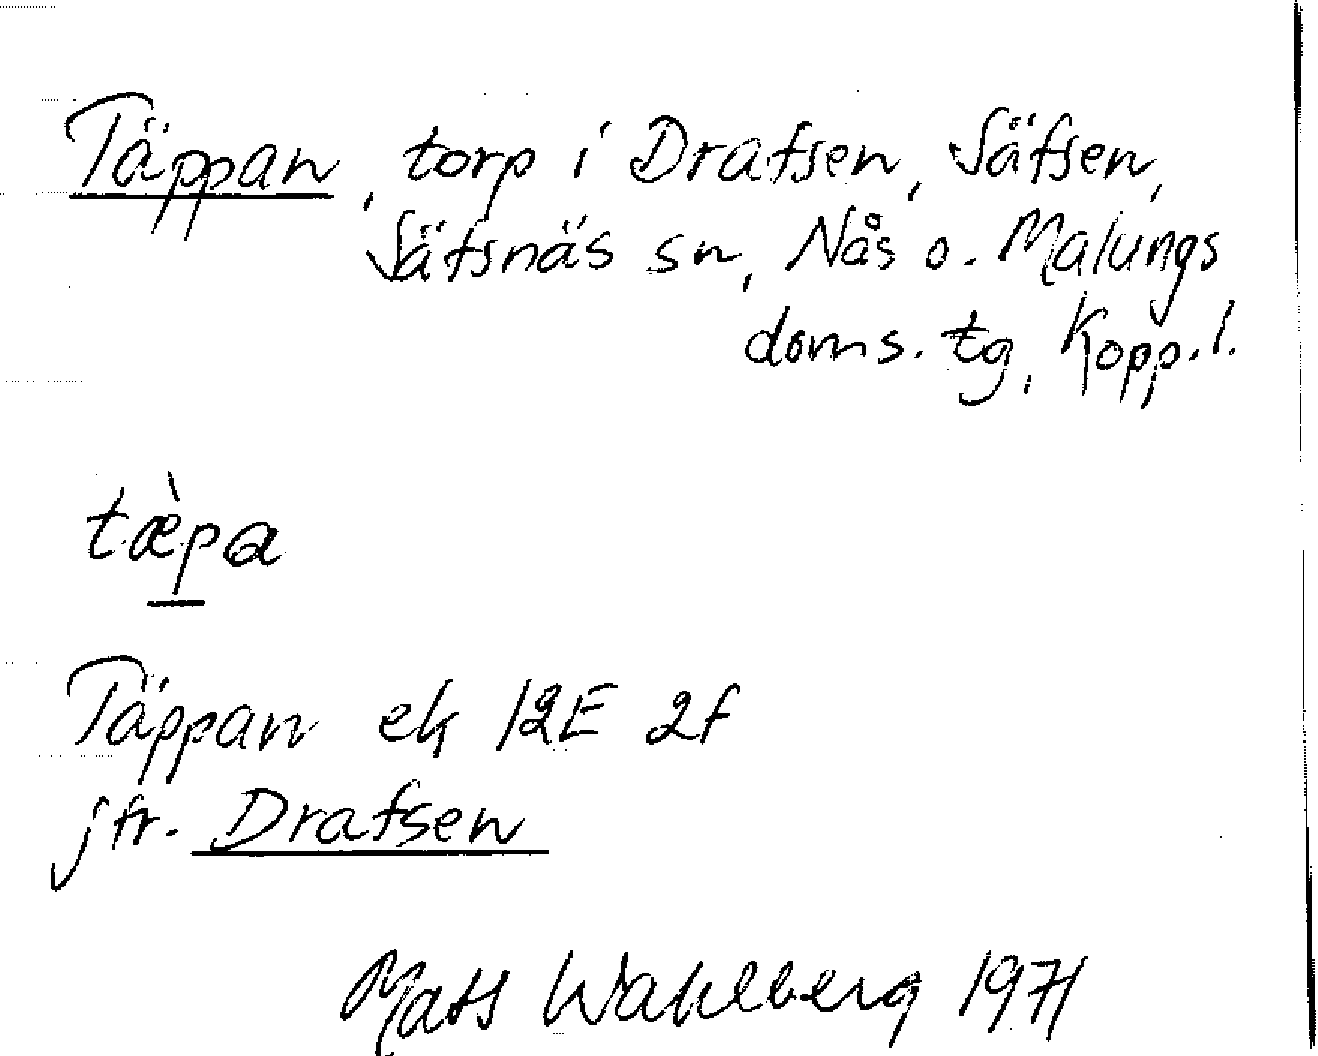 Täppan, torp i Drafsen, Säfsen,
Säfsnäs sn, Nås o. Malungs
doms. tg, Kopp. l.
tæ̀pa
Täppan ek 12E 2f
jfr. Drafsen
Mats Wahlberg 1971